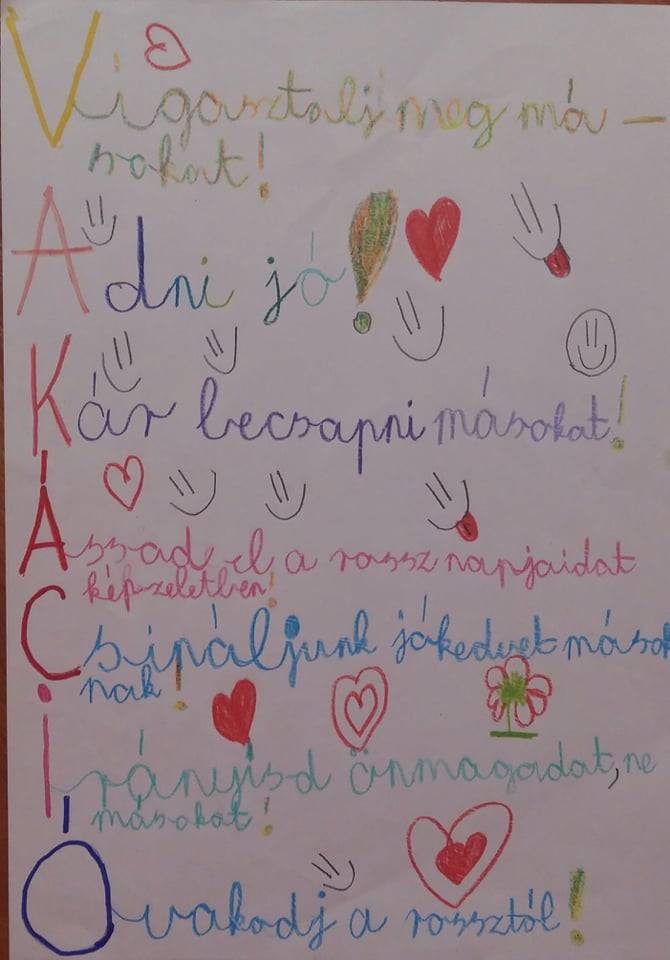 Vigasztalj meg má-
sokat!
Adni jó!
Kár becsapni másokat!
Ássad el a rossz napjaidat
képzeletben!
Csináljunk jókedvet mások
nak!
Irányísd önmagadat, ne
másokat!
Óvakodj a rossztól!